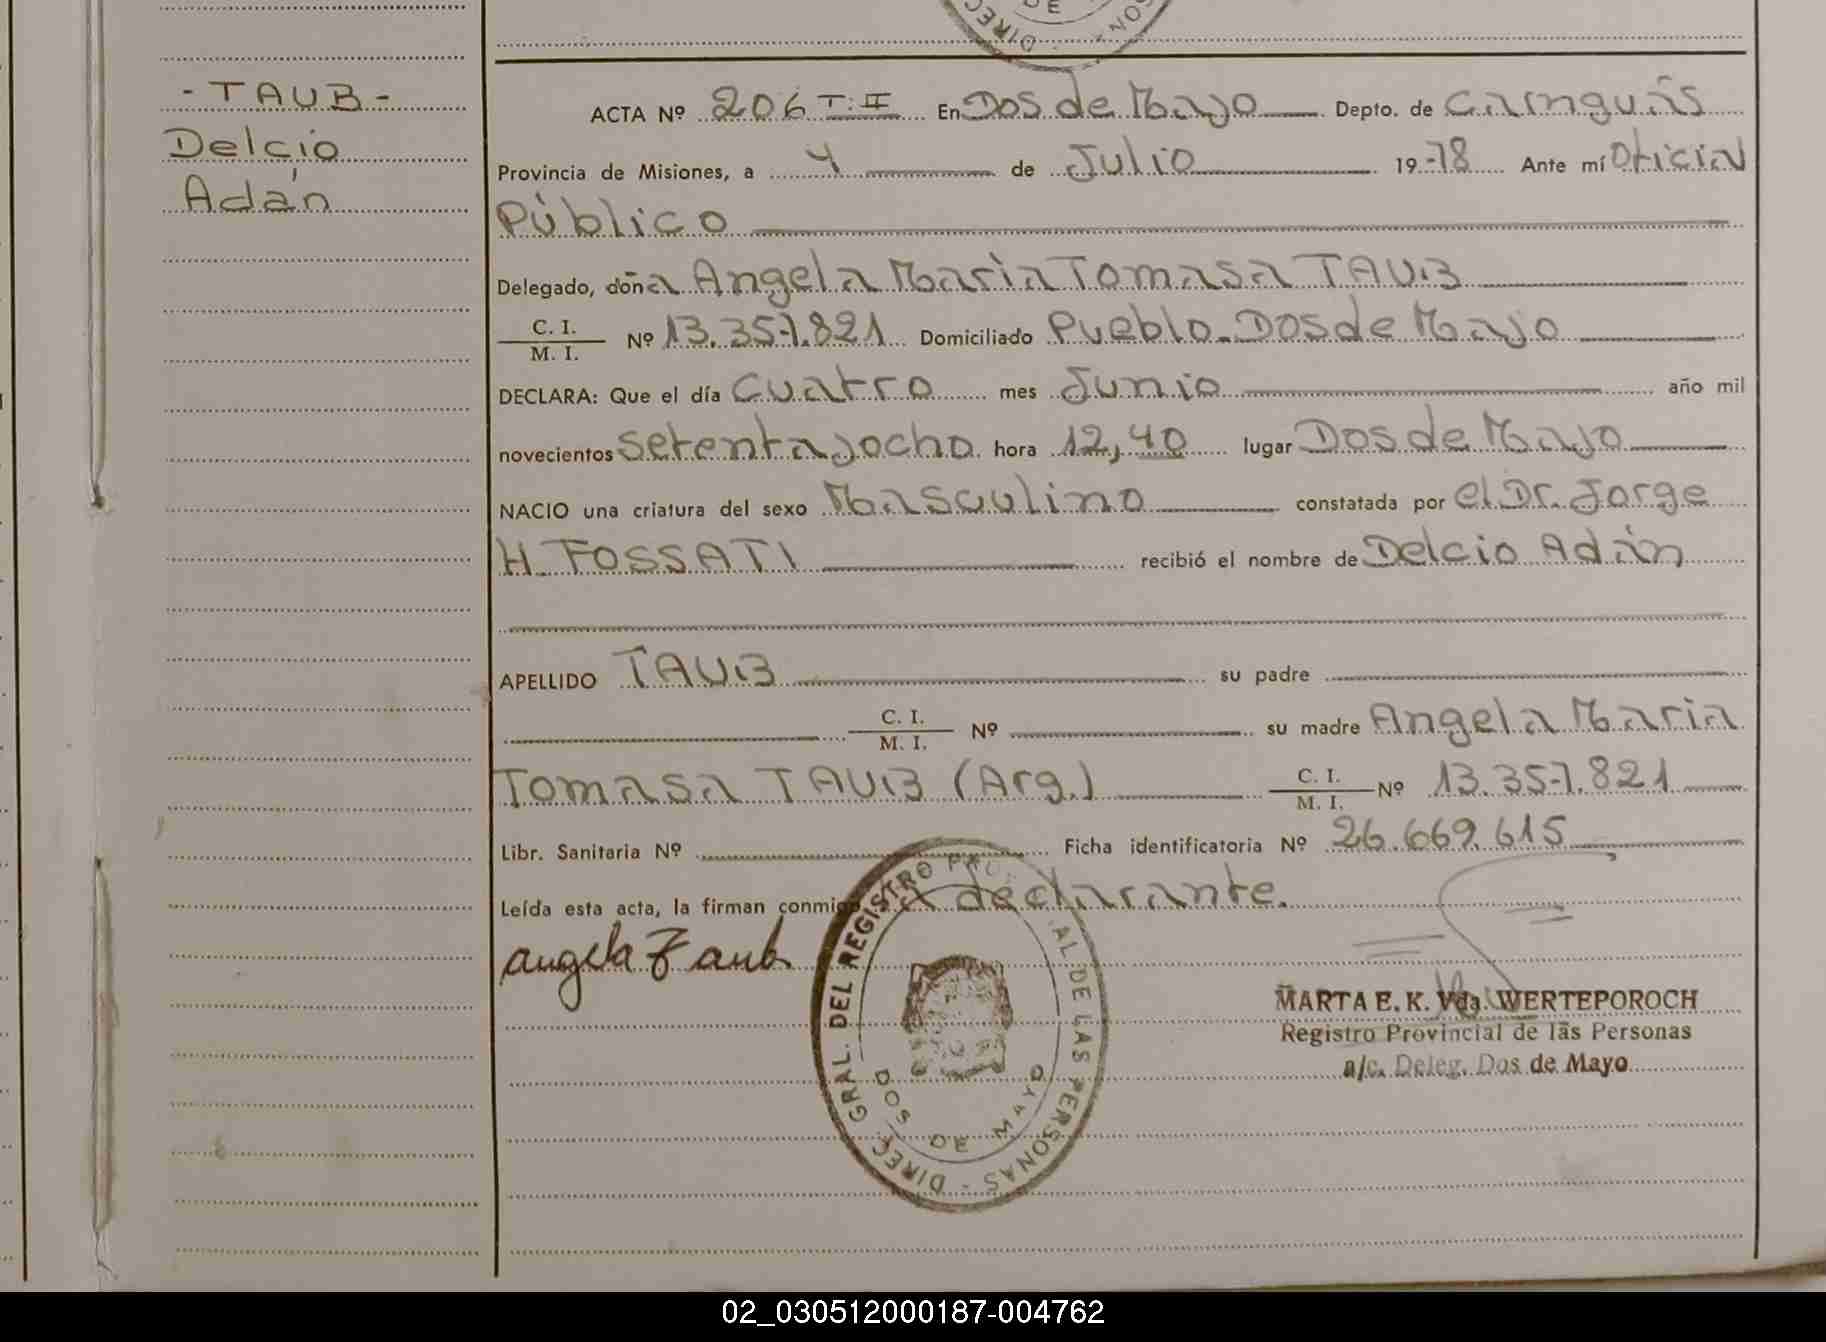 - TAUB -
Delcio
Adán
ACTA Nº 206 T: II En Dos de Mayo Depto. de Cainguás
Provincia de Misiones, a 4 de Julio 19 78 Ante mí Oficial
Público
Delegado, doña Angela Maria Tomasa TAUB
C. I.
M. I. Nº 13.357.821 Domiciliado Pueblo-Dos de Mayo
DECLARA: Que el día cuatro mes Junio año mil
novecientos setenta y ocho hora 12,40 lugar Dos de Mayo
NACIO una criatura del sexo Masculino constatada por el Dr. Jorge
H. FOSSATI recibió el nombre de Delcio Adán
APELLIDO TAUB su padre
C. I.
M. I. Nº su madre Angela Maria
Tomasa TAUB (Arg.) C. I.
M. I. Nº 13.357.821
Libr. Sanitaria Nº Ficha identificatoria Nº 26.669.615
Leída esta acta, la firman conmigo declarante.
angela Taub
DIREC. GRAL. DEL REGISTRO PROVINCIAL DE LAS PERSONAS -
DOS DE MAYO
MARTA E. K. Vda. WERTEPOROCH
Registro Provincial de las Personas
a/c. Deleg. Dos de Mayo
02_030512000187-004762